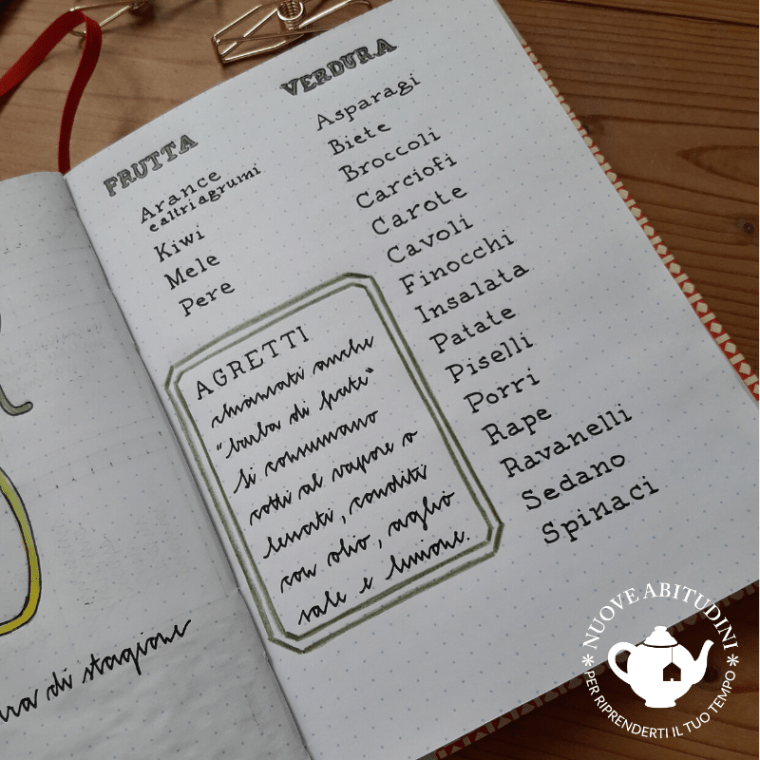 FRUTTA
Arance
e altri agrumi
Kiwi
Mele
Pere
VERDURA
Asparagi
Biete
Broccoli
Carciofi
Carote
Cavoli
Finocchi
Insalata
Patate
Piselli
Porri
Rape
Ravanelli
Sedano
Spinaci
AGRETTI
chiamati anche
"barba di frate"
Si consumano
cotti al vapore o
lessati, conditi
con olio, aglio
sale e limone.
di stagione
NUOVE ABITUDINI
PER RIPRENDERTI IL TUO TEMPO